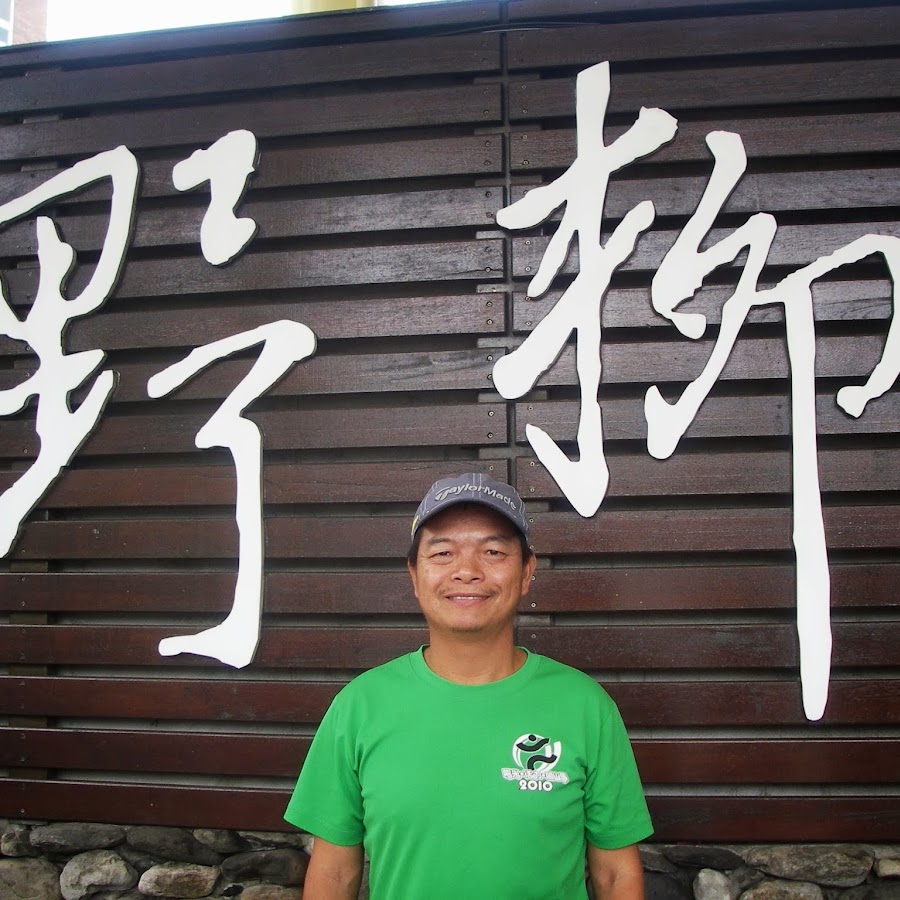 野柳
TaylorMade
2010